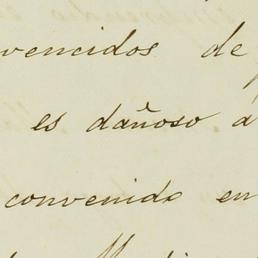 vencidos de
es dañoso a
convenido en